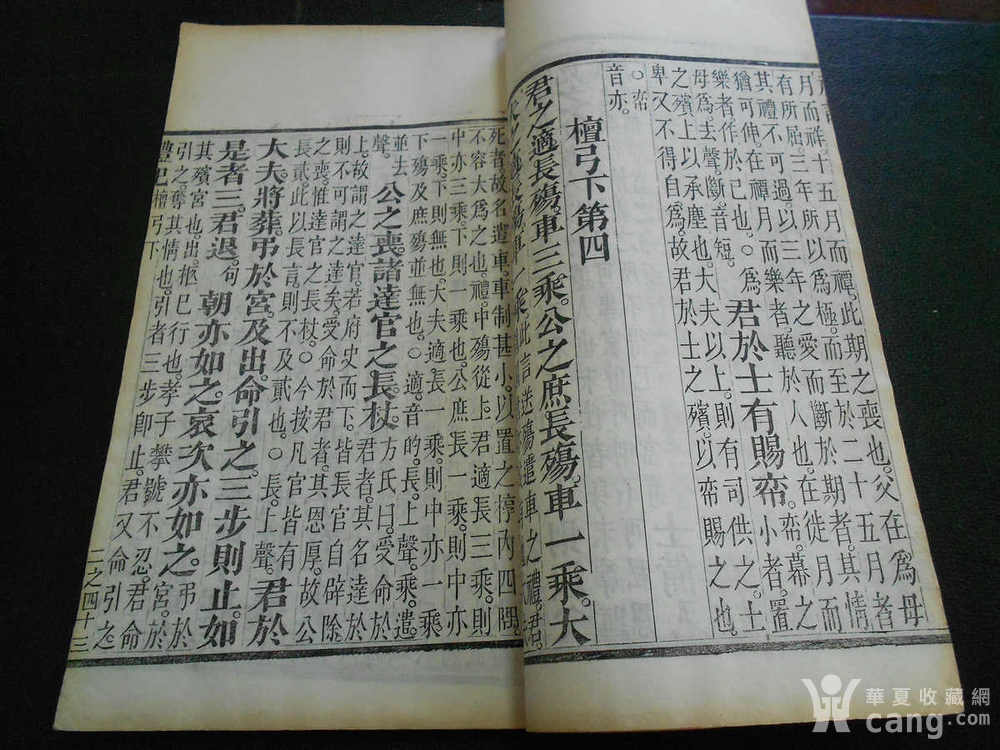 月而祥。十五月而禫。此期之喪也。父在爲母
有所屈。三年所以爲極。而至於二十五月者
其禮不可過。以三年之愛而斷於期者。其情
猶可伸。在禫月而樂者。聽於人也。在徙月而
樂者作於已也。○爲
母爲去聲。斷音短。
君於士有賜帟。
帟。幕之小者。置
之殯上以承塵也。大夫以上。則有司供之。士
卑又不得自爲。故君於士之殯。以帟賜之也。
○帟
音亦。
檀弓下第四
君之適長殤。車三乘。公之庶長殤。車一乘。大
此言送殤遣車之禮。君
死者故名遣車。車制甚小。以置之椁內四隅
不容大爲之也。禮。中殤從上。君適長三乘。則
中亦三乘。下則一乘也。公庶長一乘。則中亦
一乘。下則無也。大夫適長一乘。則中亦一乘
下殤及庶殤並無也。○適。音的。長。上聲。乘。遣。
並去聲。
公之喪。諸達官之長杖。
方氏曰。受命於君者。其名達於
上。故謂之達官。若府史而下。皆長官自辟除
則不可謂之達矣。受命於君者。其恩厚。故公
之喪。惟達官之長杖。○今按凡官皆有
長貳。此以長言。則不及貳也。○長。上聲。
君於
大夫。將葬弔於宮。及出。命引之。三步則止。如
是者三。君退。句朝亦如之。哀次亦如之。
弔於宮。於
其殯宮也。出。柩已行也。孝子攀號不忍。君命
引之。奪其情也。引者三步即止。君又命引之
禮記 檀弓下 二之四十三
華夏收藏網
cang.com